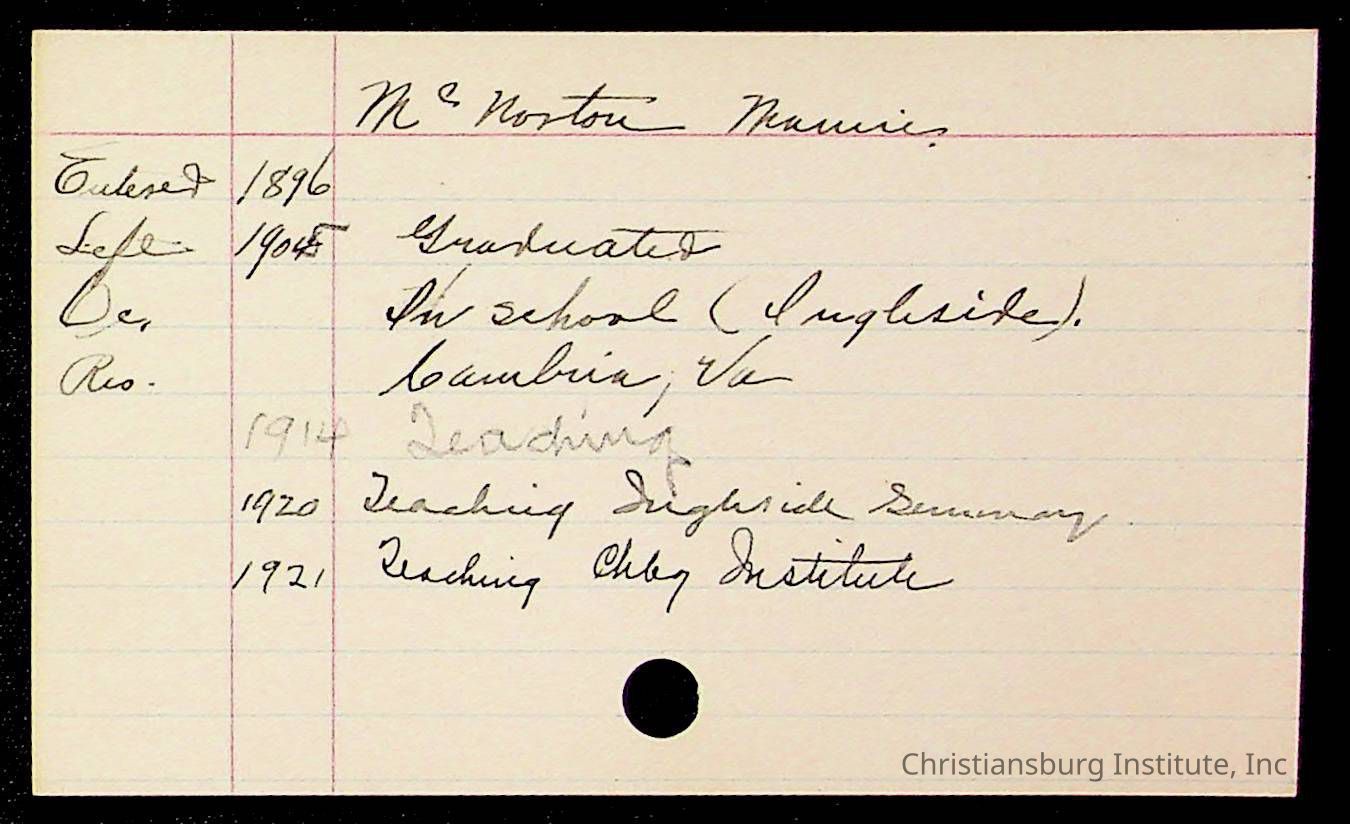 McNorton Mamie.
Entered 1896
Left 1905 Graduated
Oc. In school (Ingleside).
Res. Cambria, Va
1914 Teaching
1920 Teaching Ingleside Seminary
1921 Teaching Chbg Institute
Christiansburg Institute, Inc